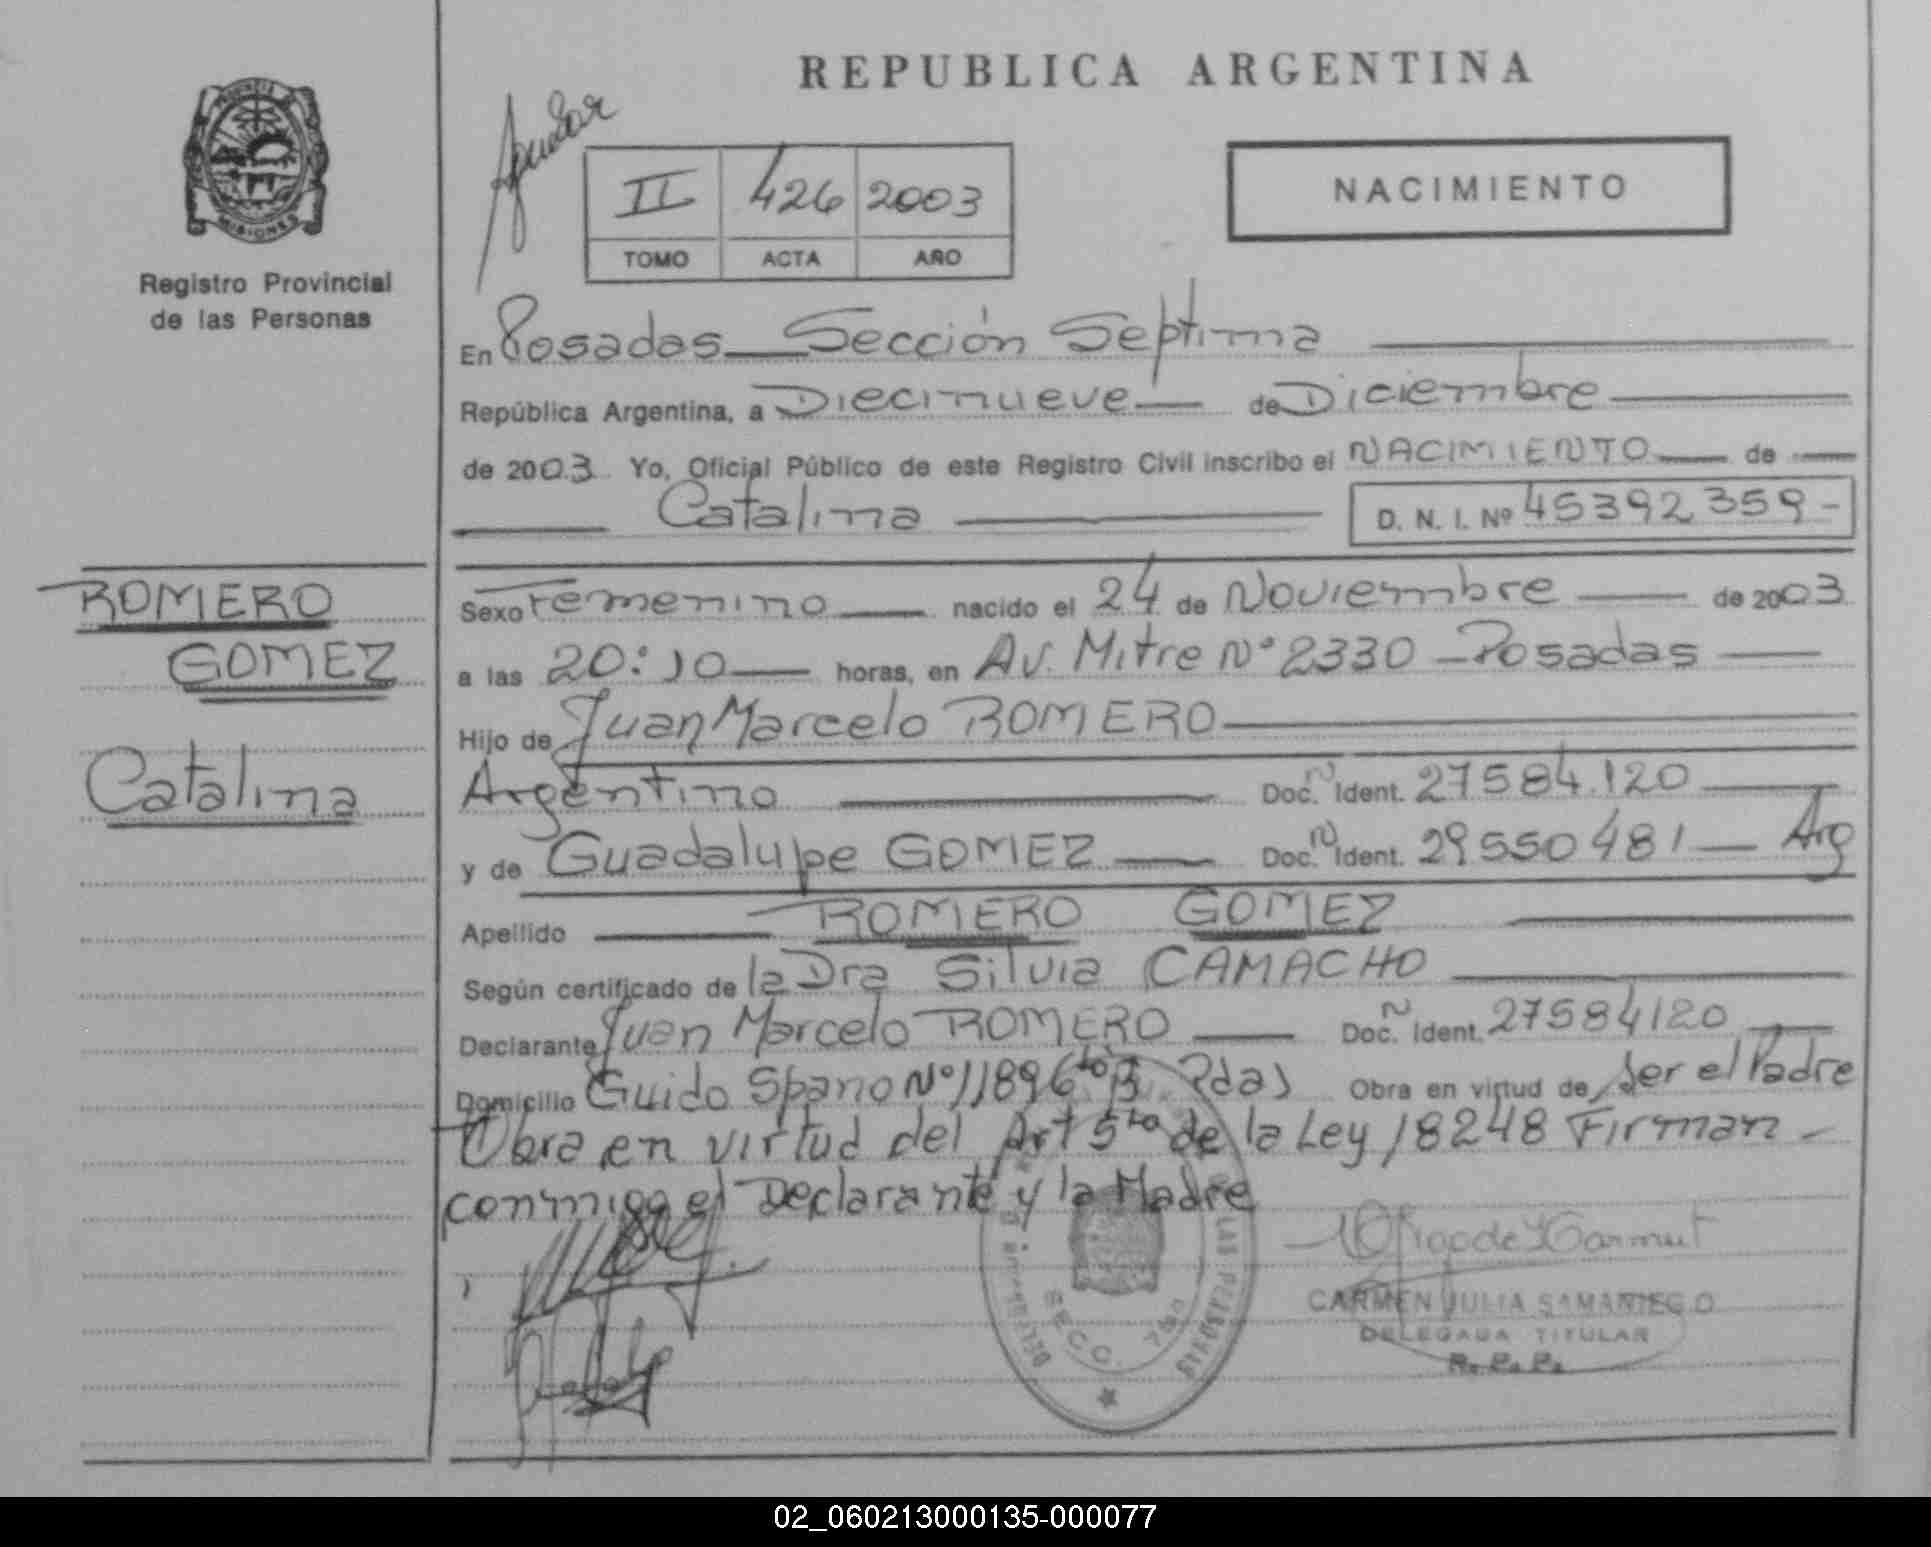 REPUBLICA ARGENTINA
PROVINCIA DE
MISIONES
Registro Provincial
de las Personas
Aguilar
II 426 2003
TOMO ACTA AÑO
NACIMIENTO
En Posadas Sección Septima
República Argentina, a Diecinueve de Diciembre
de 2003 Yo, Oficial Público de este Registro Civil inscribo el NACIMIENTO de
Catalina D. N. I. Nº 45392359-
ROMERO
GOMEZ
Catalina
Sexo Femenino nacido el 24 de Noviembre de 2003
a las 20:10 horas, en Av. Mitre Nº 2330 - Posadas
Hijo de Juan Marcelo ROMERO
Argentino Doc. N Ident. 27584.120
y de Guadalupe GOMEZ Doc. N Ident. 29550481 Arg
Apellido ROMERO GOMEZ
Según certificado de la Dra Silvia CAMACHO
Declarante Juan Marcelo ROMERO Doc. N Ident. 27584120
Domicilio Guido Spano Nº 11896 Pdas Obra en virtud de Ser el Padre
Obra en virtud del Art 5to de la Ley 18248 Firman -
conmigo el Declarante y la Madre
DE LAS PERSONAS
SECC. 7
CARMEN JULIA SAMANIEGO
DELEGADA TITULAR
R. P. P.
02_060213000135-000077